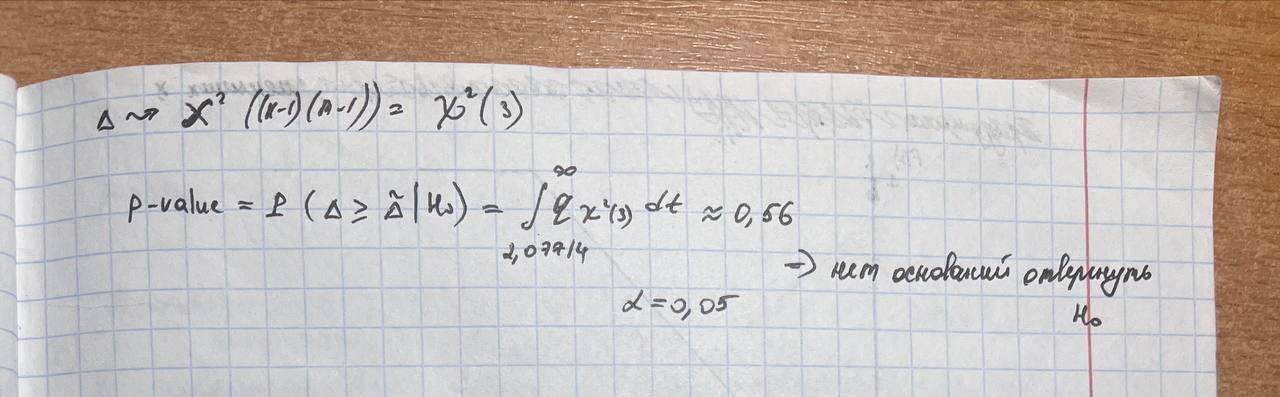 Δ ⇝ χ² ((k-1)(n-1)) = χ²(3)
p-value = P (Δ ≥ Δ̃ | H₀) = ∫_{2,07714}^{∞} q_{χ²(3)} dt ≈ 0,56
⇒ нет оснований отвергнуть H₀
α = 0,05